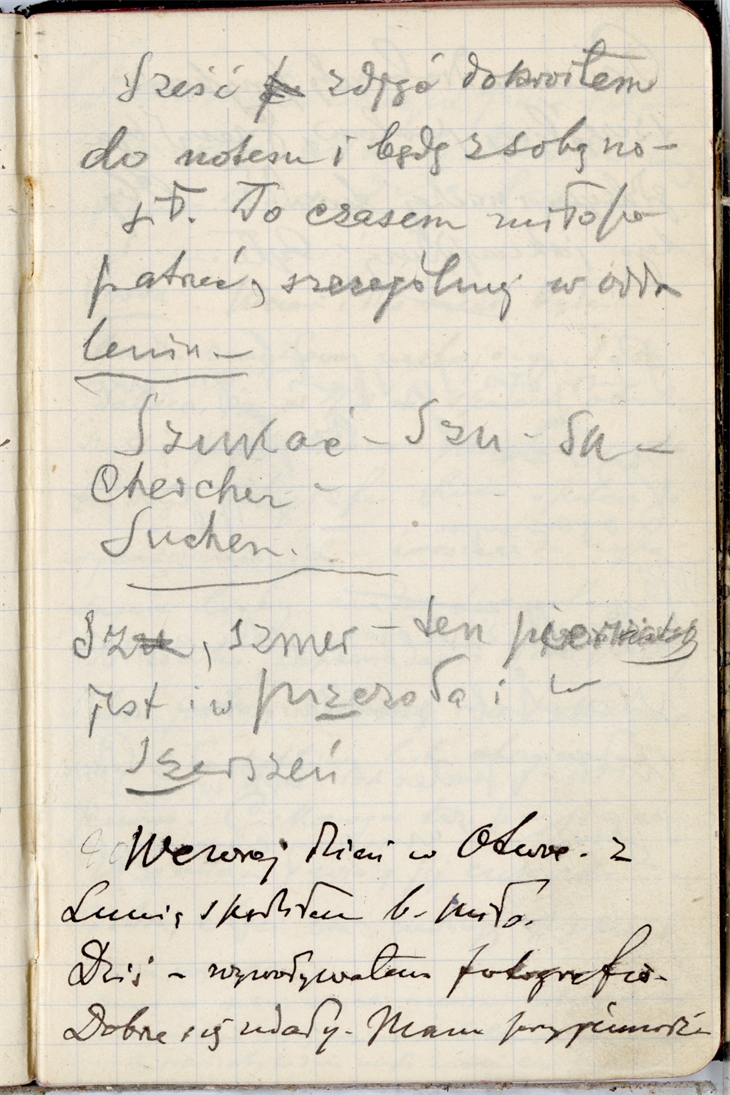 Sześć zdjęć dokroiłem
do notesu i będę z sobą no-
sił. To czasem miło po-
patrzeć, szczególniej w odda-
leniu -
Szukać - Szu - Su -
Chercher -
Suchen.
Szu, szmer - ten
jest i w pszczoła i w
Szerszeń
Wczoraj dzień w Otwo. z
Lunią spędziłem b. miło.
Dziś - wywoływałem fotografie.
Dobrze się udały. Mam